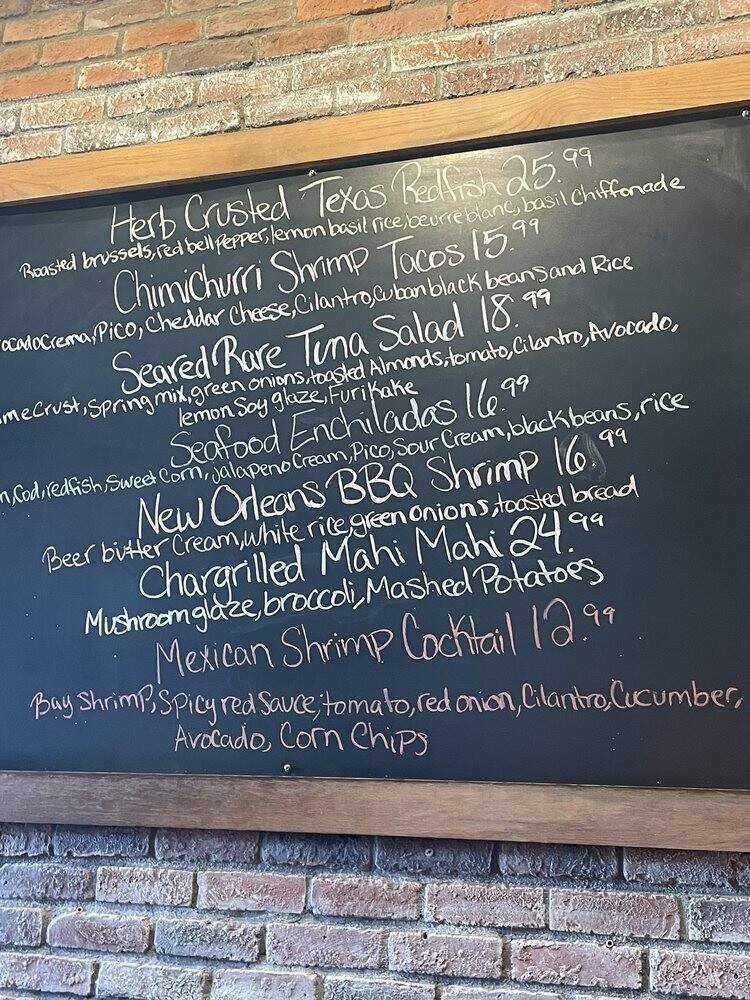 Herb Crusted Texas Redfish 25.99
Roasted brussels, red bell pepper, lemon basil rice, beurre blanc, basil chiffonade
Chimichurri Shrimp Tacos 15.99
ocado Crema, Pico, Cheddar Cheese, Cilantro, Cuban black beans and Rice
Seared Rare Tuna Salad 18.99
me Crust, Spring mix, green onions, toasted Almonds, tomato, Cilantro, Avocado,
lemon Soy glaze, Furikake
Seafood Enchiladas 16.99
n, Cod, redfish, Sweet Corn, jalapeno Cream, Pico, Sour Cream, black beans, rice
New Orleans BBQ Shrimp 16.99
Beer butter Cream, white rice, green onions, toasted bread
Chargrilled Mahi Mahi 24.99
Mushroom glaze, broccoli, Mashed Potatoes
Mexican Shrimp Cocktail 12.99
Bay Shrimp, Spicy red Sauce, tomato, red onion, Cilantro, Cucumber,
Avocado, Corn Chips